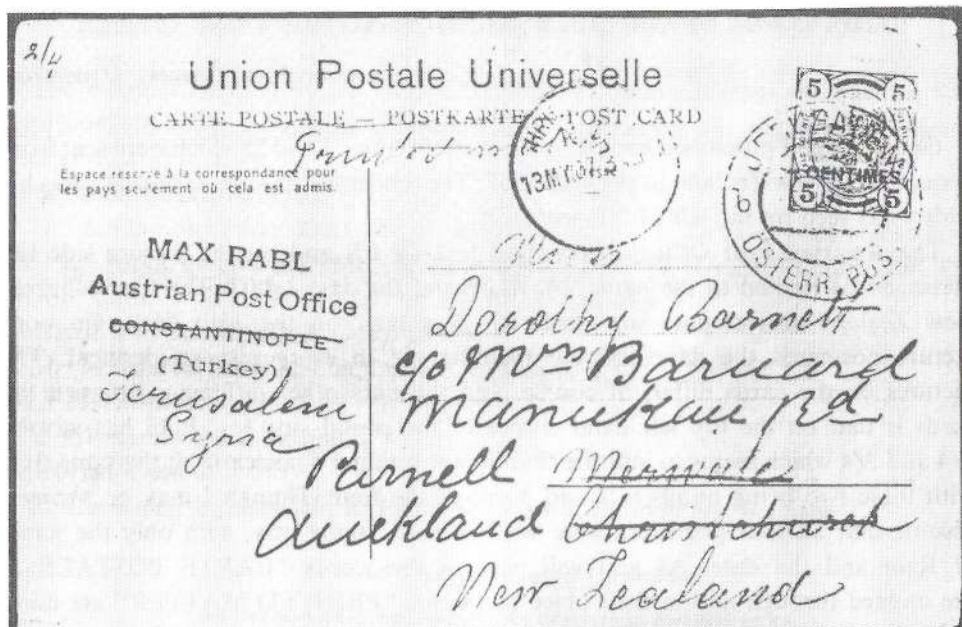 2/4
Union Postale Universelle
CARTE POSTALE – POSTKARTE – POST CARD
Printed
Espace réservé à la correspondance pour
les pays seulement où cela est admis.
5 5
CENTIMES
5 5
13
b
MAX RABL
Austrian Post Office
CONSTANTINOPLE
(Turkey)
Jerusalem
Syria
Dorothy Barnett
c/o Mrs Barnard
Manukau Rd
Parnell
Auckland Christchurch
New Zealand